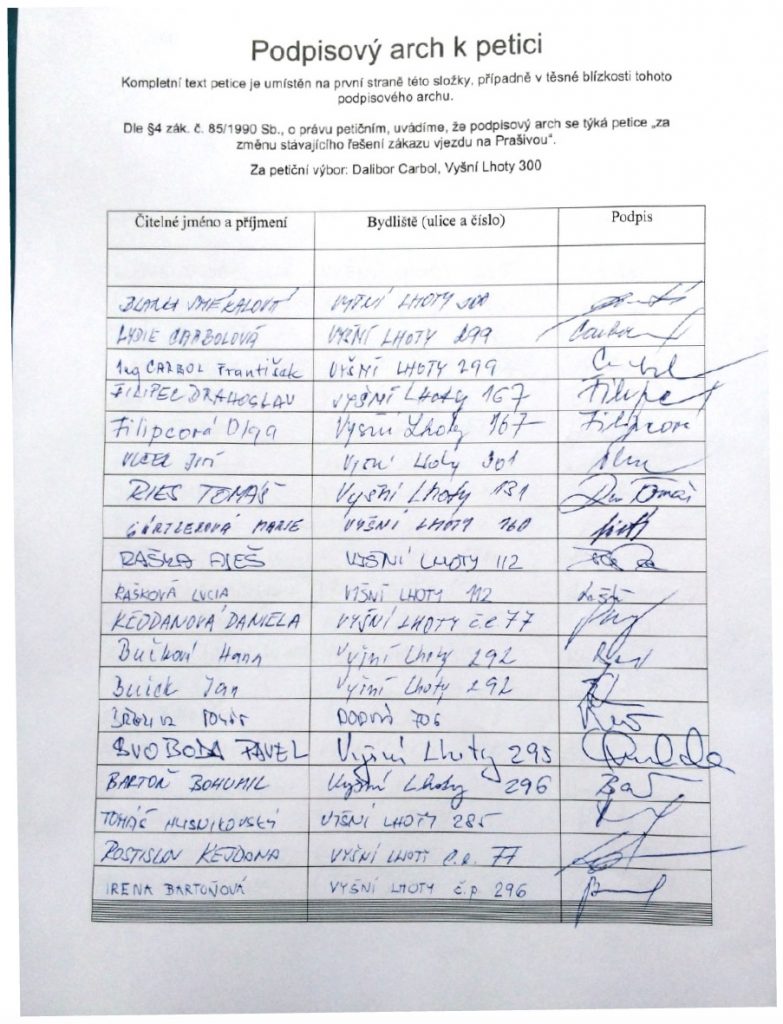 Podpisový arch k petici
Kompletní text petice je umístěn na první straně této složky, případně v těsné blízkosti tohoto
podpisového archu.
Dle §4 zák. č. 85/1990 Sb., o právu petičním, uvádíme, že podpisový arch se týká petice „za
změnu stávajícího řešení zákazu vjezdu na Prašivou".
Za petiční výbor: Dalibor Carbol, Vyšní Lhoty 300
Čitelné jméno a příjmení Bydliště (ulice a číslo) Podpis
VYŠNÍ LHOTY 300
LYDIE CARBOLOVÁ VYŠNÍ LHOTY 299
Ing CARBOL František VYŠNÍ LHOTY 299
FILIPEC DRAHOSLAV VYŠNÍ Lhoty 167 Filipec
Filipcová Olga Vyšní Lhoty 167 Filipcová
JIŘÍ Vyšní Lhoty 301
RIES TOMÁŠ Vyšní Lhoty 131 Tomáš
MARIE VYŠNÍ LHOTY 160
RAŠKA ALEŠ VYŠNÍ LHOTY 112
RAŠKOVÁ LUCIA VYŠNÍ LHOTY 112
KEJDANOVÁ DANIELA VYŠNÍ LHOTY č.e. 77
Hana Vyšní Lhoty 292
Jan Vyšní Lhoty 292
706
SVOBODA PAVEL Vyšní Lhoty 295
BARTOŇ BOHUMIL Vyšní Lhoty 296
TOMÁŠ HLISNIKOVSKÝ VYŠNÍ LHOTY 285
ROSTISLAV KEJDANA VYŠNÍ LHOTY č.e. 77
IRENA BARTOŇOVÁ VYŠNÍ LHOTY č.p. 296